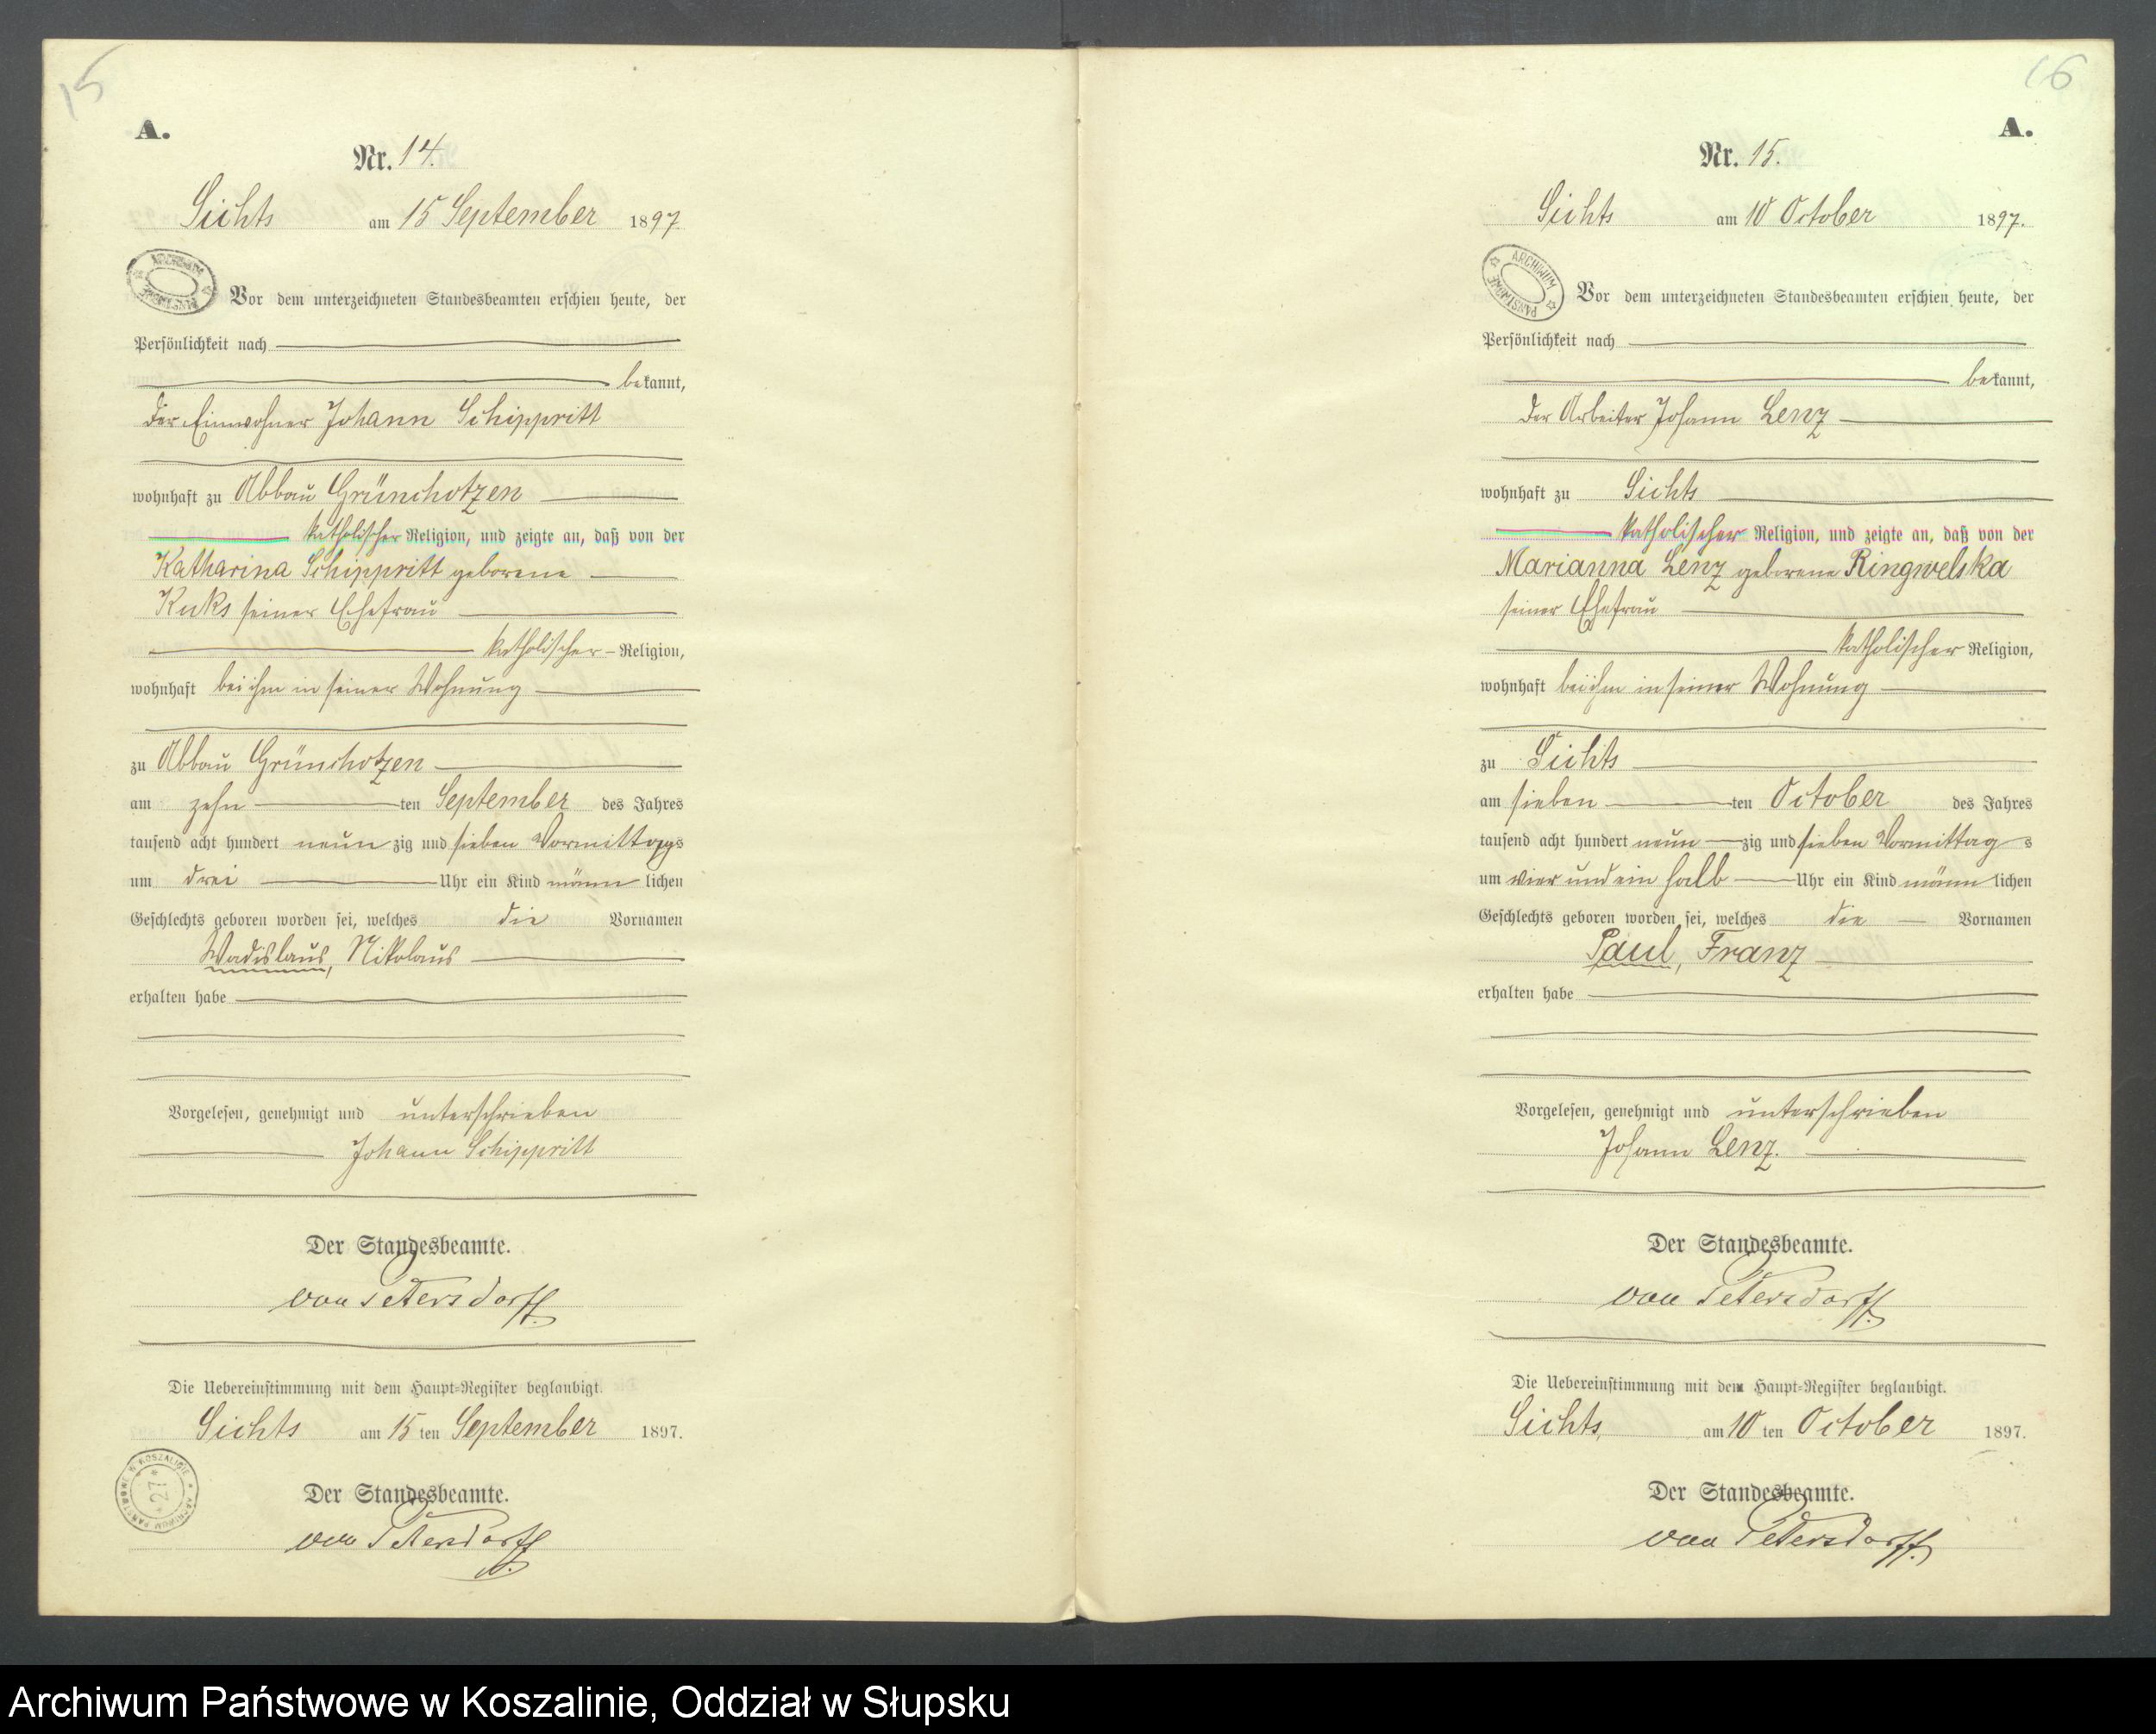 15
A.
Nr. 14.
Sichts am 15 September 1897.
ARCHIWUM PAŃSTWOWE
Vor dem unterzeichneten Standesbeamten erschien heute, der
Persönlichkeit nach
bekannt,
der Einwohner Johann Schippritt
wohnhaft zu Abbau Grünchotzen
katholischer Religion, und zeigte an, daß von der
Katharina Schippritt geborene
Kuks seiner Ehefrau
katholischer Religion,
wohnhaft bei ihm in seiner Wohnung
zu Abbau Grünchotzen
am zehn ten September des Jahres
tausend acht hundert neun zig und sieben Vormittags
um drei Uhr ein Kind männ lichen
Geschlechts geboren worden sei, welches die Vornamen
Wadislaus, Nikolaus
erhalten habe
Vorgelesen, genehmigt und unterschrieben
Johann Schippritt
Der Standesbeamte.
von Petersdorff.
Die Uebereinstimmung mit dem Haupt-Register beglaubigt.
Sichts am 15 ten September 1897.
ARCHIWUM PAŃSTWOWE W KOSZALINIE * 27 *
Der Standesbeamte.
von Petersdorff.
16
A.
Nr. 15.
Sichts am 10 October 1897.
ARCHIWUM PAŃSTWOWE
Vor dem unterzeichneten Standesbeamten erschien heute, der
Persönlichkeit nach
bekannt,
der Arbeiter Johann Lenz
wohnhaft zu Sichts
katholischer Religion, und zeigte an, daß von der
Marianna Lenz geborene Ringwelska
seiner Ehefrau
katholischer Religion,
wohnhaft bei ihm in seiner Wohnung
zu Sichts
am sieben ten October des Jahres
tausend acht hundert neun zig und sieben Vormittag s
um vier und ein halb Uhr ein Kind männ lichen
Geschlechts geboren worden sei, welches die Vornamen
Paul, Franz
erhalten habe
Vorgelesen, genehmigt und unterschrieben
Johann Lenz.
Der Standesbeamte.
von Petersdorff.
Die Uebereinstimmung mit dem Haupt-Register beglaubigt.
Sichts, am 10 ten October 1897.
Der Standesbeamte.
von Petersdorff.
Archiwum Państwowe w Koszalinie, Oddział w Słupsku